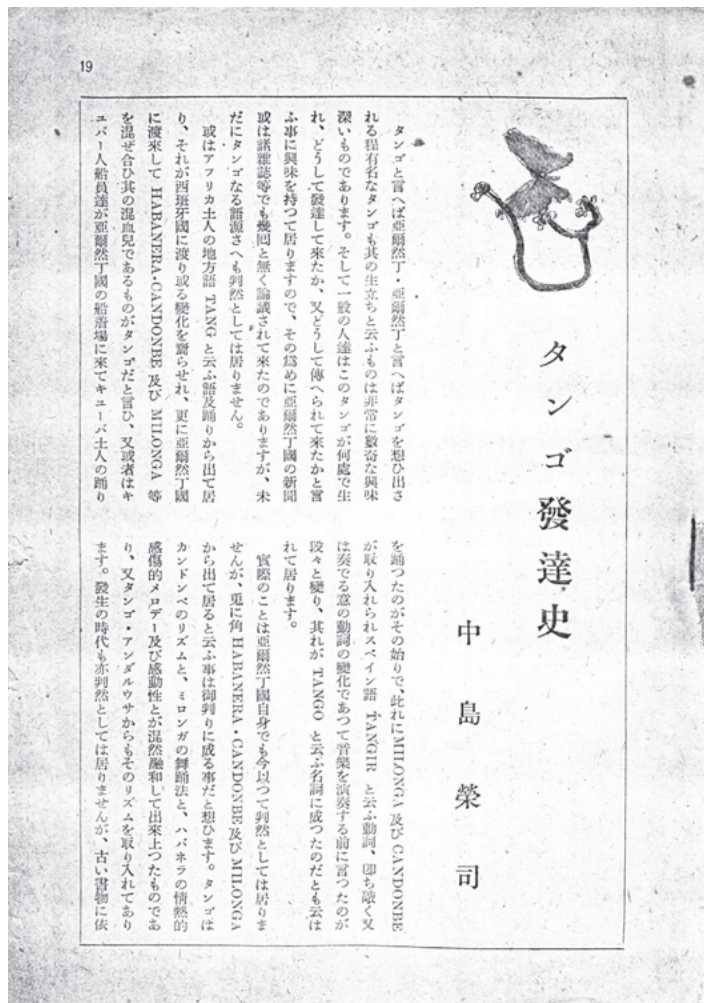 19
タンゴ發達史
中島榮司
タンゴと言へば亞爾然丁・亞爾然丁と言へばタンゴを想ひ出さ
れる程有名なタンゴも其の生立ちと云ふものは非常に數奇な興味
深いものであります。そして一般の人達はこのタンゴが何處で生
れ、どうして發達して來たか、又どうして傳へられて來たかと言
ふ事に興味を持つて居りますので、その爲めに亞爾然丁國の新聞
或は諸雜誌等でも幾囘と無く論議されて來たのでありますが、未
だにタンゴなる語源さへも判然としては居りません。
或はアフリカ土人の地方語 TANG と云ふ語及踊りから出て居
り、それが西班牙國に渡り或る變化を齎らせれ、更に亞爾然丁國
に渡來して HABANERA・CANDONBE 及び MILONGA 等
を混ぜ合ひ其の混血兒であるものがタンゴだと言ひ、又或者はキ
ユバー人船員達が亞爾然丁國の船着場に來てキユーバ土人の踊り
を踊つたのがその始りで、此れにMILONGA 及び CANDONBE
が取り入れられスペイン語 TANGIR と云ふ動詞、卽ち敲く又
は奏でる意の動詞の變化であつて音樂を演奏する前に言つたのが
段々と變り、其れが TANGO と云ふ名詞に成つたのだとも云は
れて居ります。
實際のことは亞爾然丁國自身でも今以つて判然としては居りま
せんが、兎に角 HABANERA・CANDONBE 及び MILONGA
から出て居ると云ふ事は御判りに成る事だと想ひます。タンゴは
カンドンベのリズムと、ミロンガの舞踊法と、ハバネラの情熱的
感傷的メロデー及び感動性とが混然融和して出來上つたものであ
り、又タンゴ・アンダルウサからもそのリズムを取り入れてあり
ます。發生の時代も亦判然としては居りませんが、古い書物に依